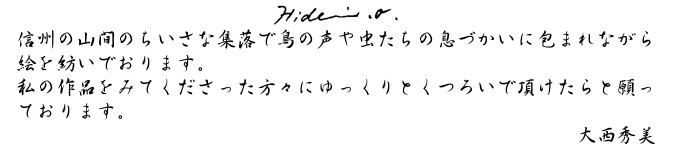 Hidemi.O.
信州の山間のちいさな集落で鳥の声や虫たちの息づかいに包まれながら
絵を紡いでおります。
私の作品をみてくださった方々にゆっくりとくつろいで頂けたらと願っ
ております。
大西秀美